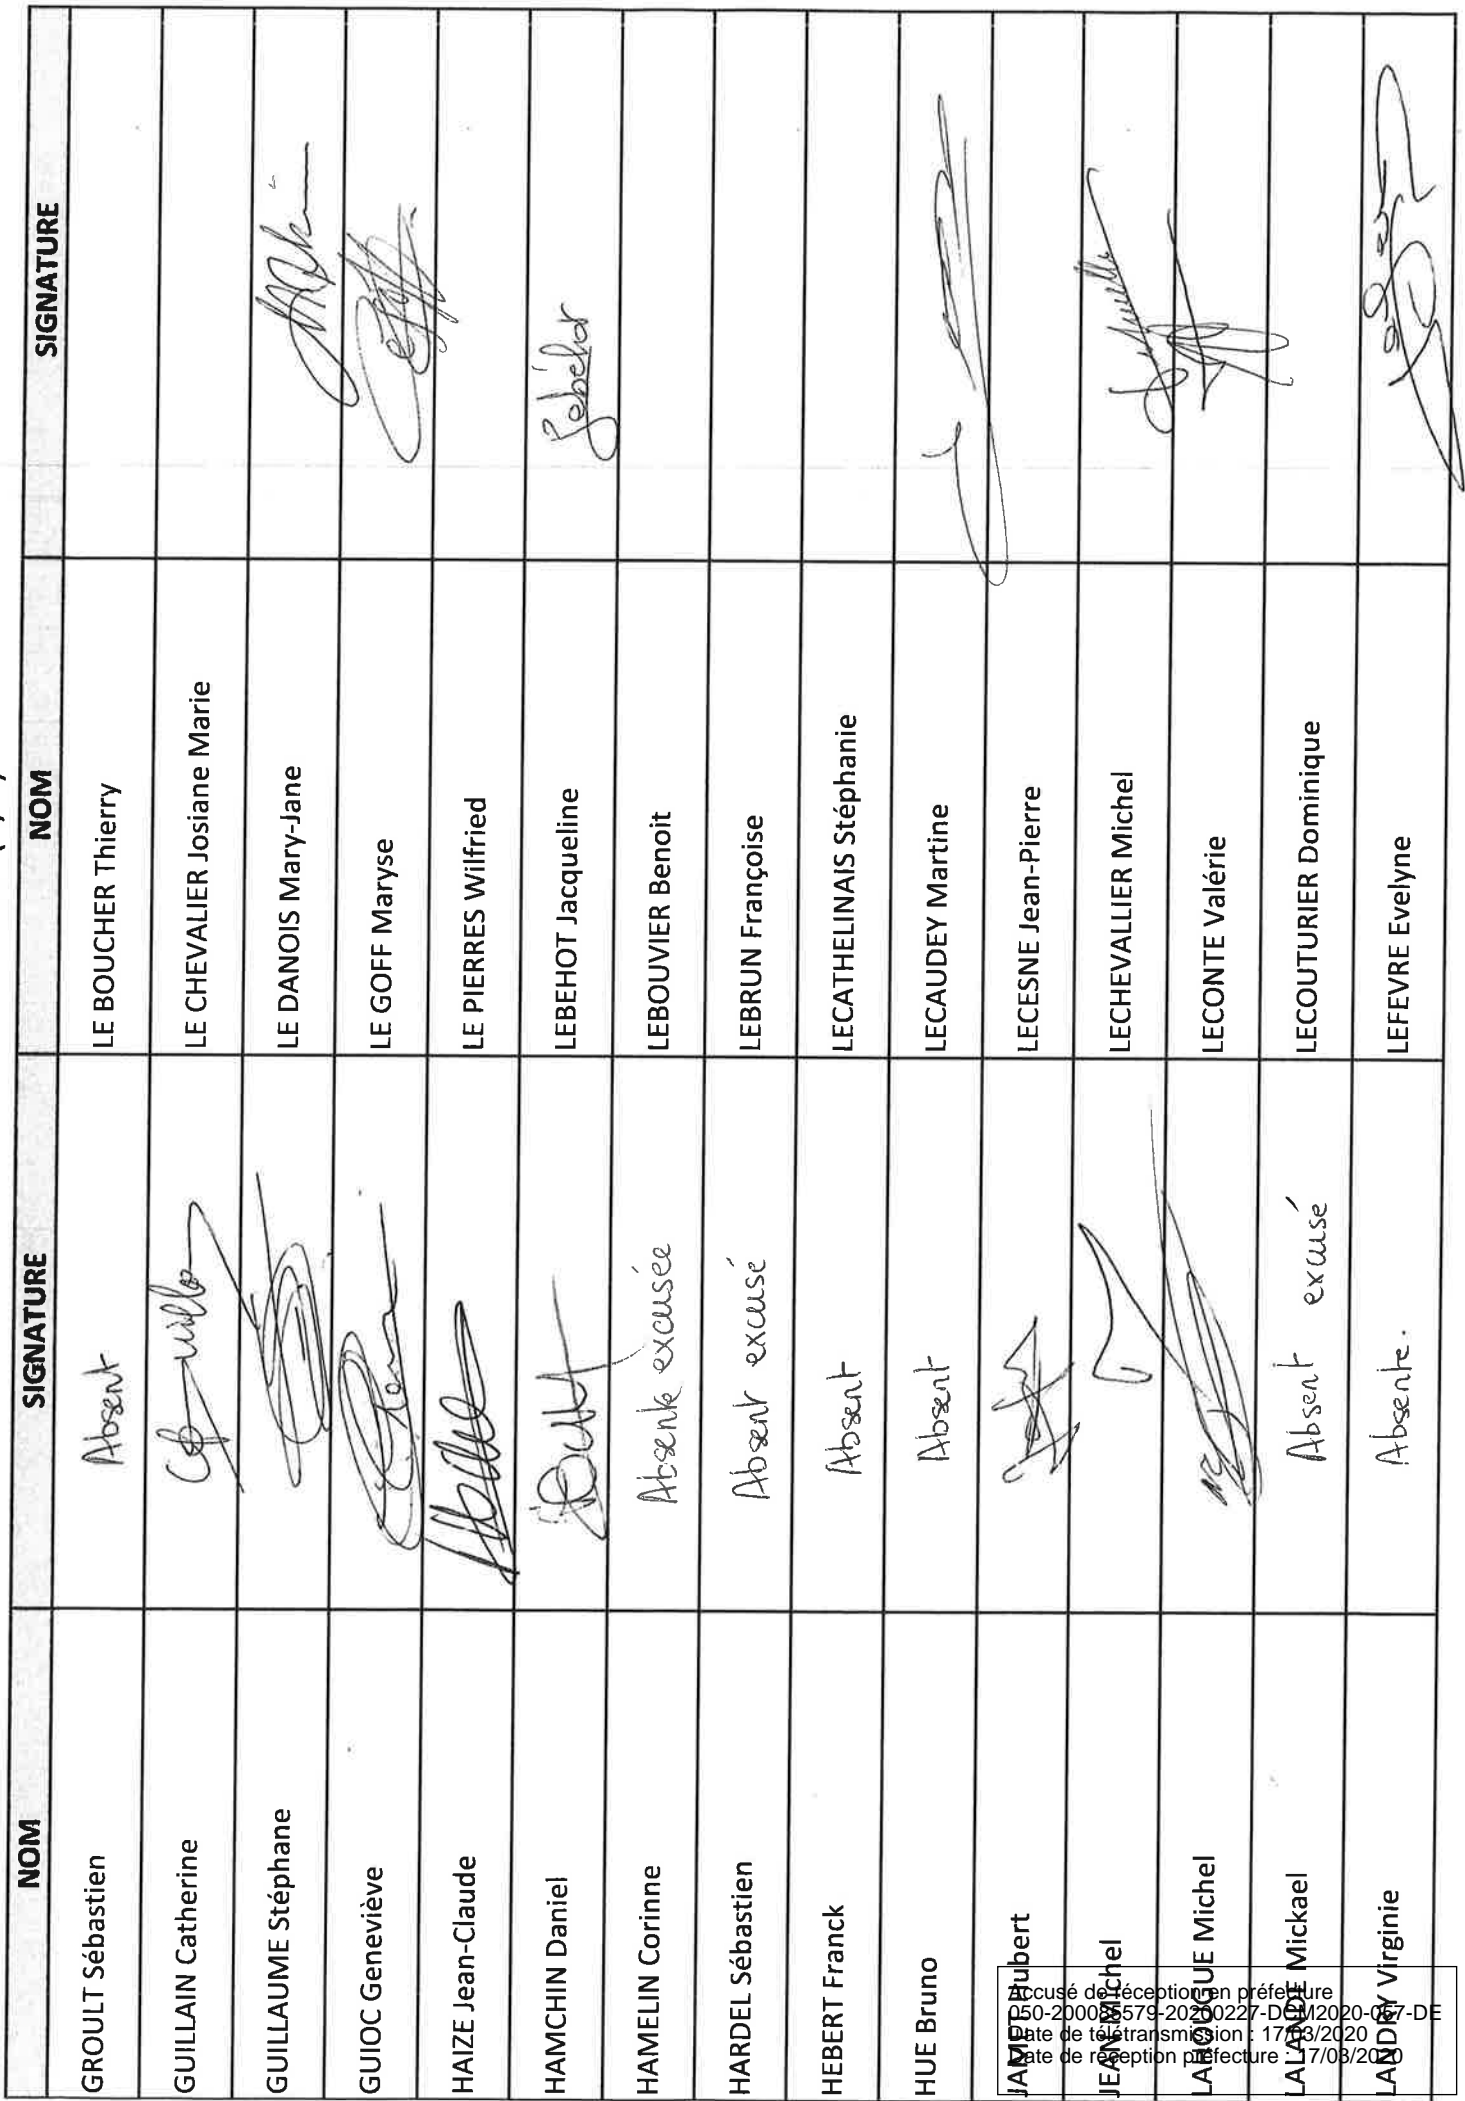 NOM SIGNATURE NOM SIGNATURE
GROULT Sébastien Absent LE BOUCHER Thierry
GUILLAIN Catherine LE CHEVALIER Josiane Marie
GUILLAUME Stéphane LE DANOIS Mary-Jane
GUIOC Geneviève LE GOFF Maryse
HAIZE Jean-Claude LE PIERRES Wilfried
HAMCHIN Daniel LEBEHOT Jacqueline
HAMELIN Corinne Absente excusée LEBOUVIER Benoit
HARDEL Sébastien Absent excusé LEBRUN Françoise
HEBERT Franck Absent LECATHELINAIS Stéphanie
HUE Bruno Absent LECAUDEY Martine
JAMET Hubert LECESNE Jean-Pierre
JEAN Michel LECHEVALLIER Michel
LAHOUGUE Michel LECONTE Valérie
LALANDE Mickael Absent excusé LECOUTURIER Dominique
LANDRY Virginie Absente. LEFEVRE Evelyne
Accusé de réception en préfecture
050-200085579-20200227-DCM2020-057-DE
Date de télétransmission : 17/03/2020
Date de réception préfecture : 17/03/2020